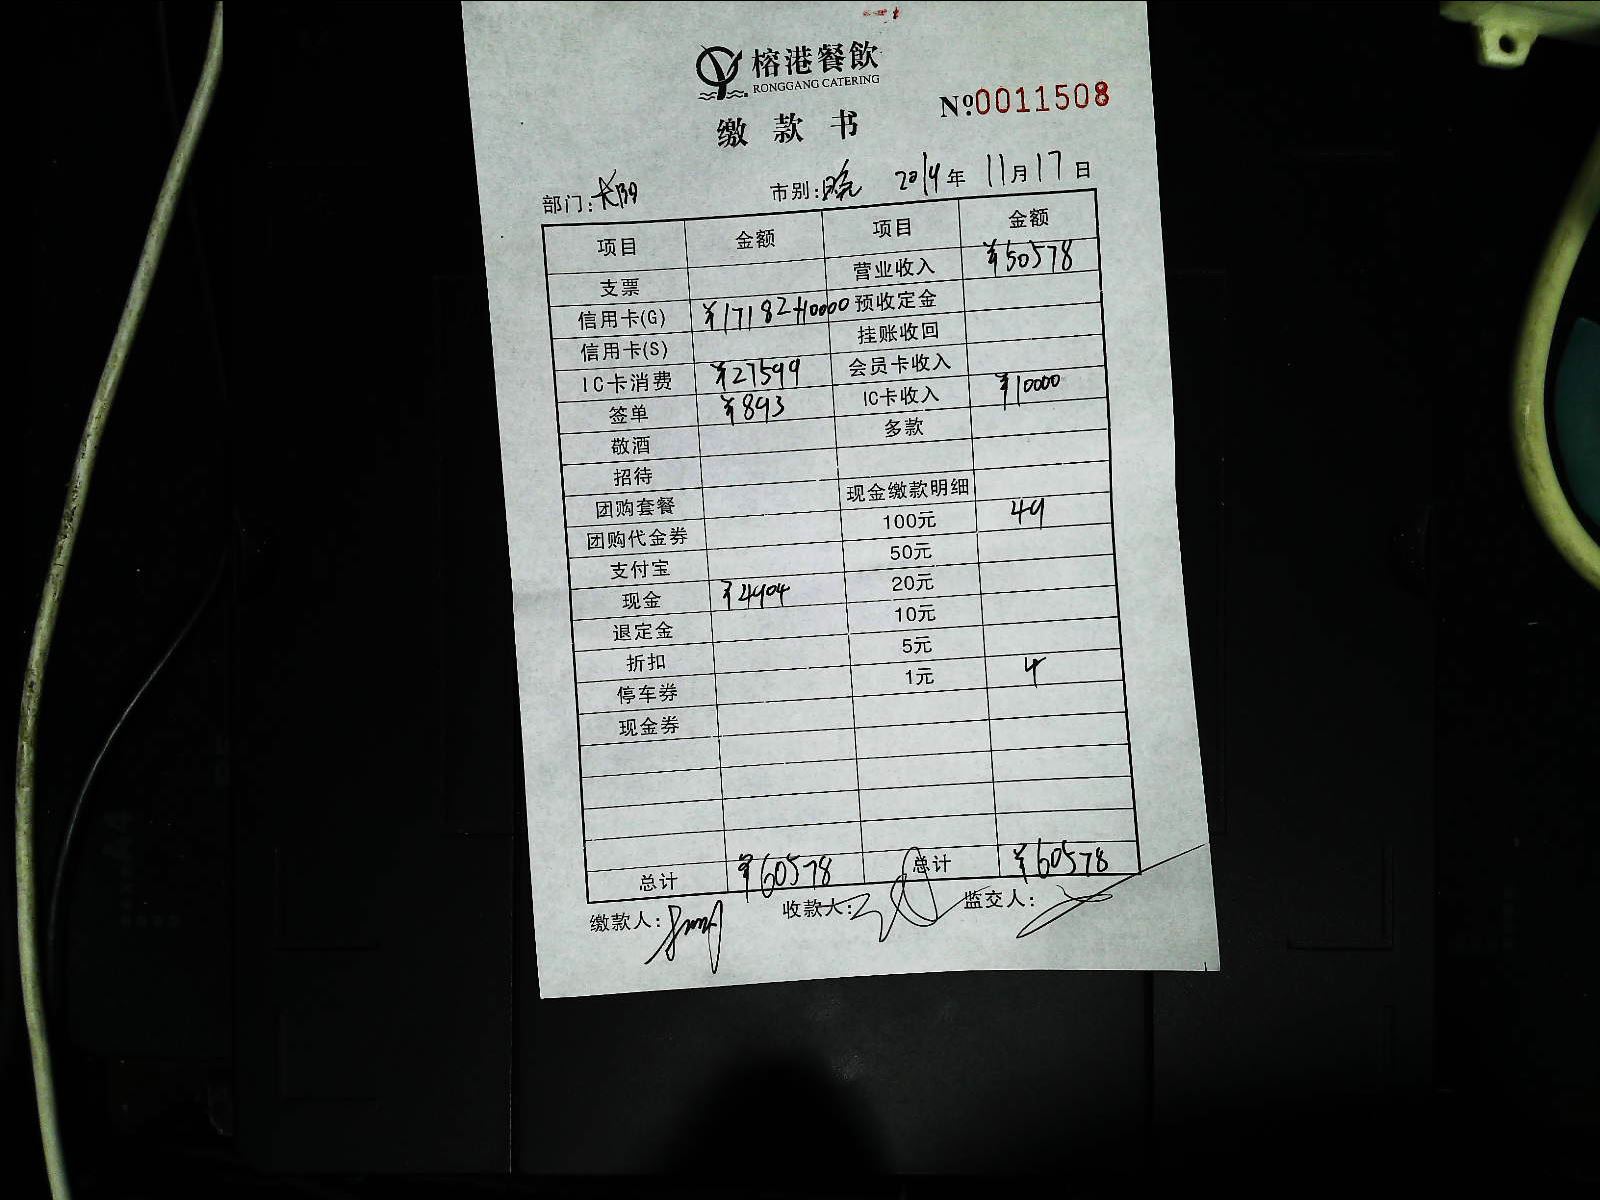 榕港餐飲
RONGGANG CATERING
№0011508
缴款书
部门: 长阳 市别: 晚 2014年 11月17日
项目 金额 项目 金额
支票 营业收入 ¥50578
信用卡(G) ¥17182+10000 预收定金
信用卡(S) 挂账收回
IC卡消费 ¥27599 会员卡收入
签单 ¥893 IC卡收入 ¥10000
敬酒 多款
招待
团购套餐 现金缴款明细
团购代金券 100元 49
支付宝 50元
现金 ¥4904 20元
退定金 10元
折扣 5元
停车券 1元 4
现金券
总计 ¥60578 总计 ¥60578
缴款人: 收款人: 监交人: